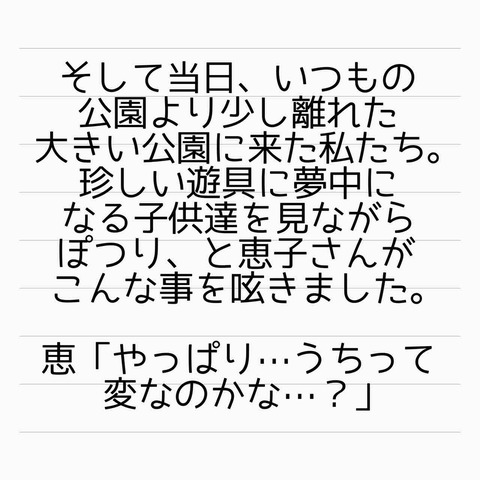 そして当日、いつもの
公園より少し離れた
大きい公園に来た私たち。
珍しい遊具に夢中に
なる子供達を見ながら
ぽつり、と恵子さんが
こんな事を呟きました。
恵「やっぱり…うちって
変なのかな…？」